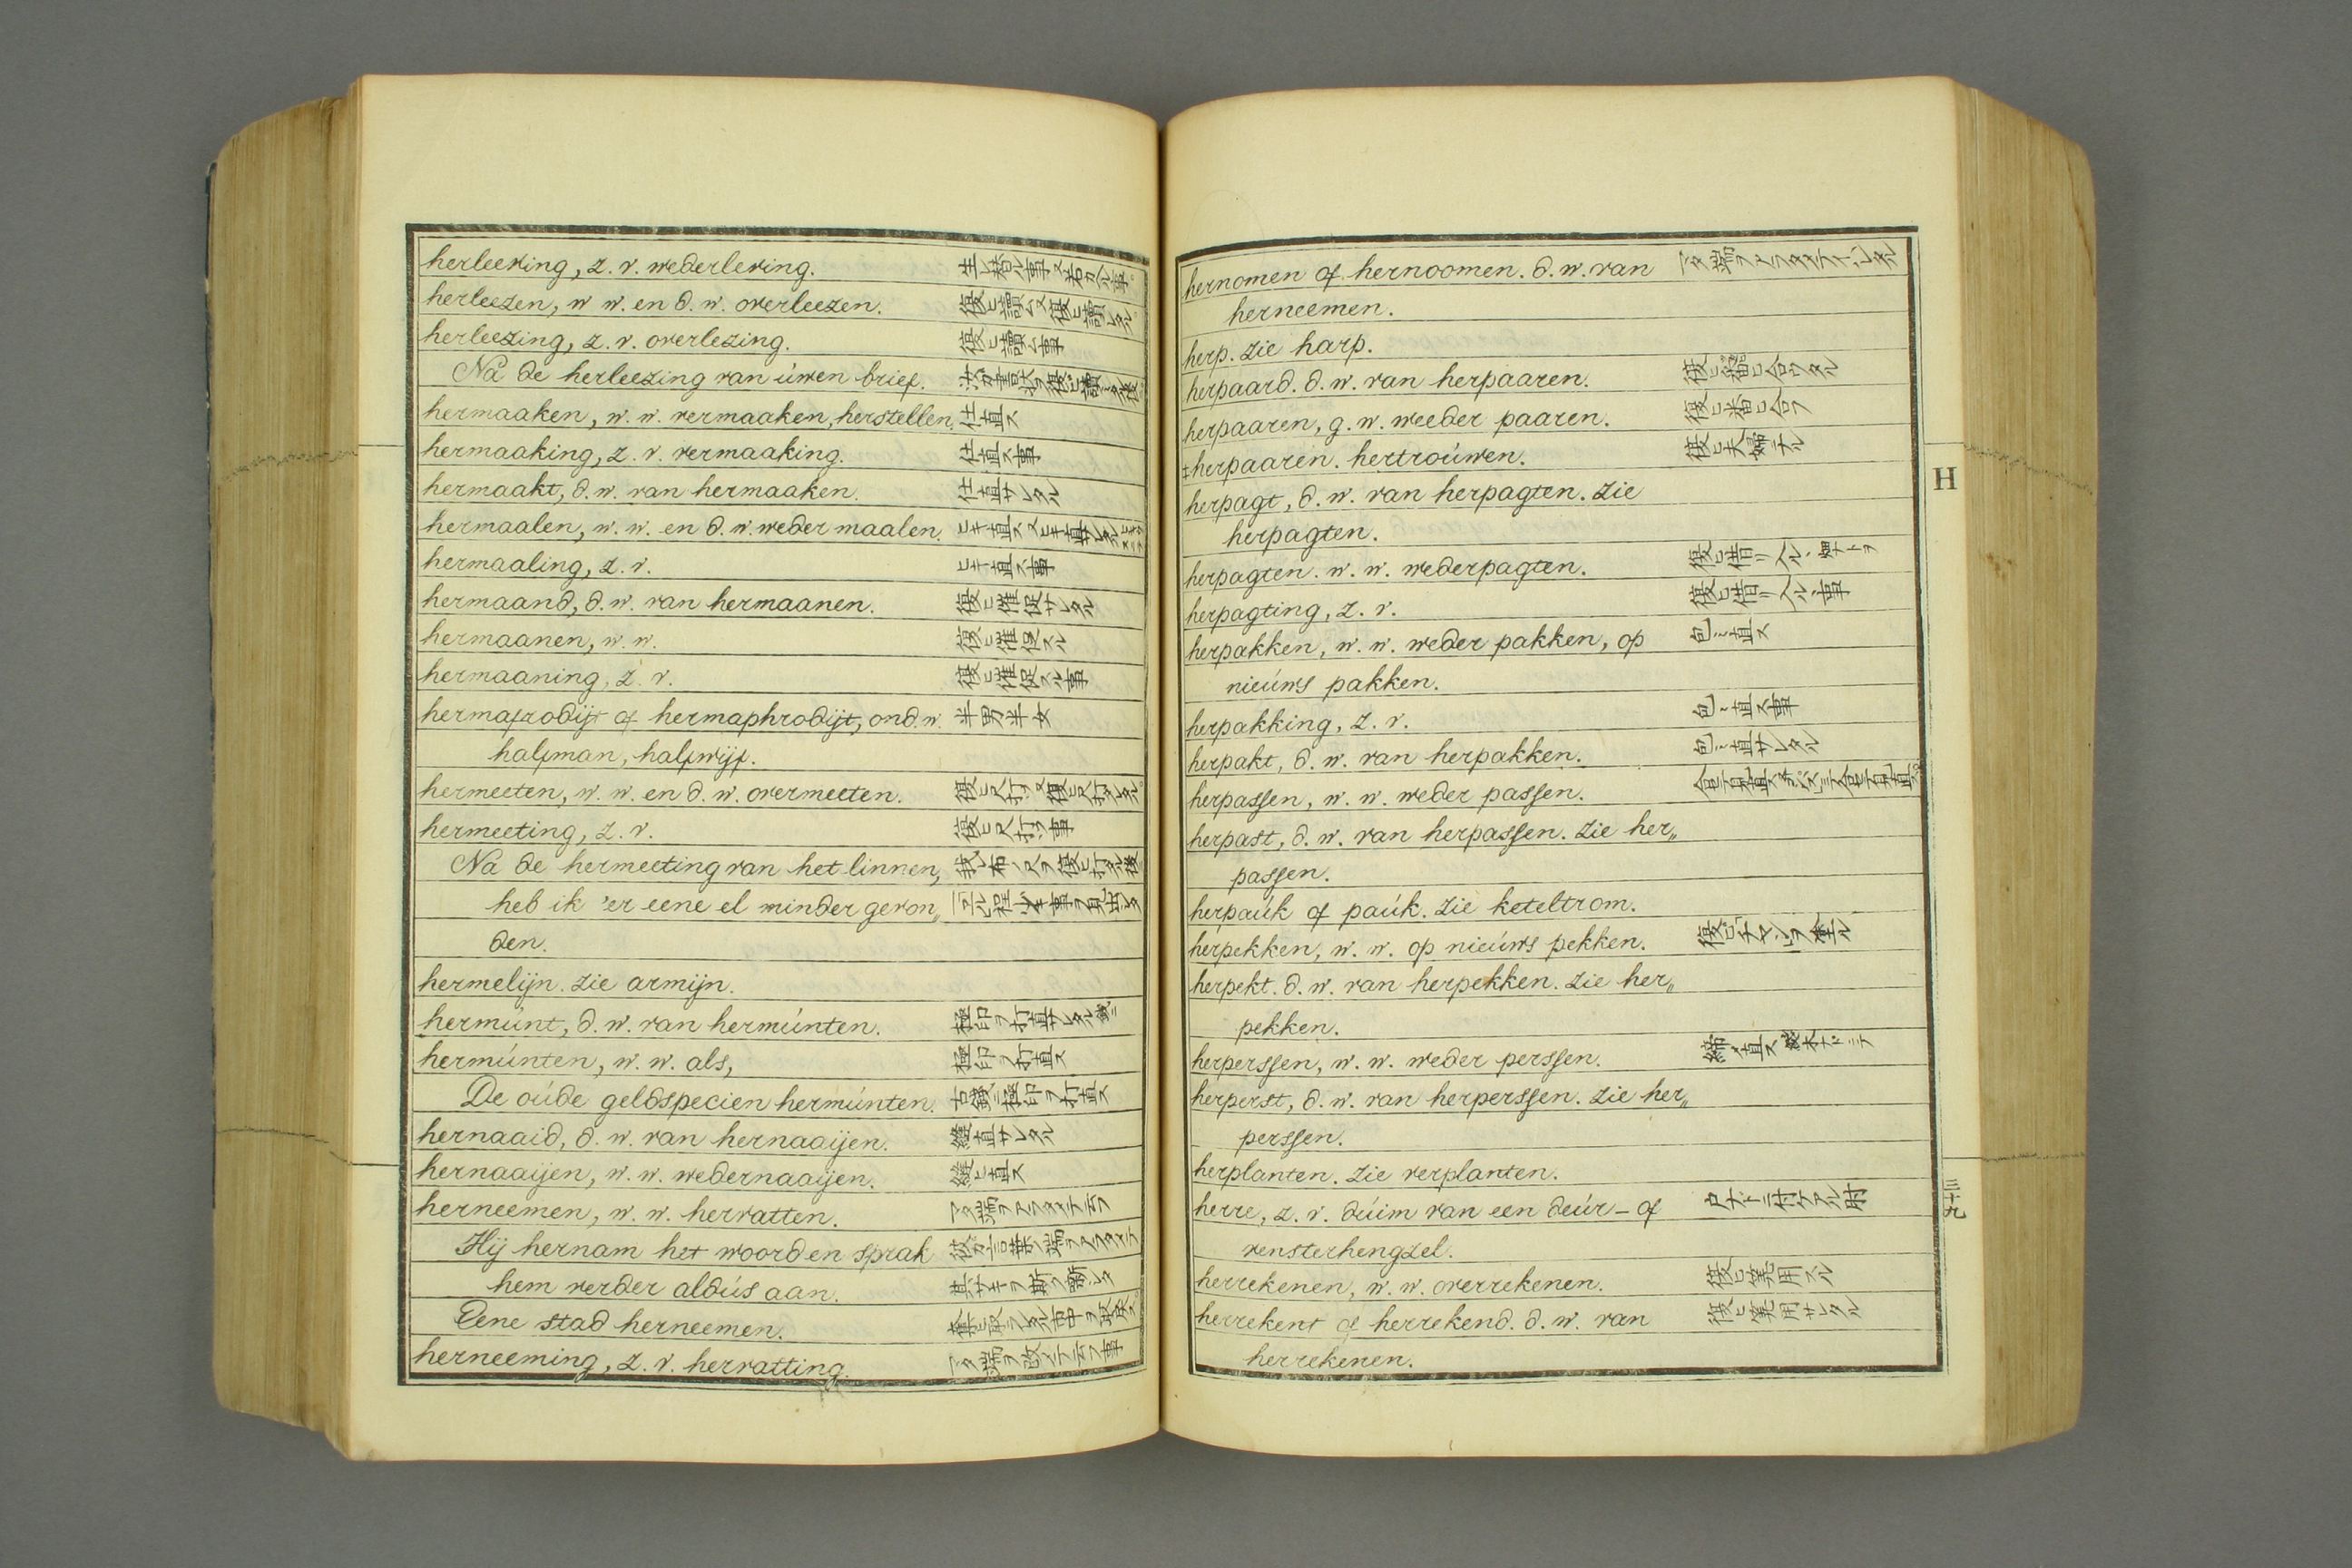 herleeving, z. v. wederleving. 生レ替ル事又若カル事
herleezen, w w. en d. w. overleezen. 復ヒ讀ム又復ヒ讀レタル
herleezing, z. v. overlezing. 復ヒ讀ム事
Na de herleezing van úwen brief. 書状ヲ復ヒ讀タル後
hermaaken, w. w. vermaaken, herstellen. 仕直ス
hermaaking, z. v. vermaaking. 仕直ス事
hermaakt, d. w. van hermaaken. 仕直サレタル
hermaalen, w. w. en d. w. weder maalen. ヒキ直ス又ヒキ直サレタル
hermaaling, z. v. ヒキ直ス事
hermaand, d. w. van hermaanen. 復ヒ催促サレタル
hermaanen, w. w. 復ヒ催促スル
hermaaning, z. v. 復ヒ催促スル事
hermafrodijt of hermaphrodijt, ond. w. 半男半女
halfman, halfwijf.
hermeeten, w. w. en d. w. overmeeten. 復ヒ尺打ツ又復ヒ尺打レタル
hermeeting, z. v. 復ヒ尺打ツ事
Na de hermeeting van het linnen, 我レ布ノ尺ヲ復ヒ打タル後
heb ik 'er eene el minder gevon„
den.
hermelijn. zie armijn.
hermúnt, d. w. van hermúnten. 極印ヲ打直サレタル
hermúnten, w. w. als, 極印ヲ打直ス
De oúde geldspecien hermúnten. 古錢ニ極印ヲ打直ス
hernaaid, d. w. van hernaaijen. 縫直サレタル
hernaaijen, w. w. wedernaaijen. 縫ヒ直ス
herneemen, w. w. hervatten. マタ端ヲアラタメテ云フ
Hij hernam het woord en sprak 彼カ言葉ノ端ヲアラタメテ
hem verder aldús aan.
Eene stad herneemen. 奪ヒ取ラレタル市中ヲ取戻ス
herneeming, z. v. hervatting. マタ端ヲ改メテ云フ事
hernomen of hernoomen. d. w. van マタ端ヲアラタメテ
herneemen.
herp. zie harp.
herpaard. d. w. van herpaaren. 復ヒ番ヒ合ワタル
herpaaren, g. w. weeder paaren. 復ヒ番ヒ合フ
‡herpaaren. hertroúwen. 復ヒ夫婦ナル
herpagt, d. w. van herpagten. zie
herpagten.
herpagten. w. w. wederpagten. 復ヒ借リ入ル
herpagting, z. v. 復ヒ借リ入ル事
herpakken, w. w. weder pakken, op 包ミ直ス
nieúws pakken.
herpakking, z. v. 包ミ直ス事
herpakt, d. w. van herpakken. 包ミ直サレタル
herpassen, w. w. weder passen.
herpast, d. w. van herpassen. zie her„
passen.
herpaúk of paúk. zie keteltrom.
herpekken, w. w. op nieúws pekken. 復ヒチャンヲ塗ル
herpekt. d. w. van herpekken. zie her„
pekken.
herperssen, w. w. weder perssen. 締メ直ス
herperst, d. w. van herperssen. zie her„
perssen.
herplanten. zie verplanten.
herre, z. v. dúim van een deúr - of
vensterhengzel.
herrekenen, w. w. overrekenen. 復ヒ算用スル
herrekent of herrekend. d. w. van 復ヒ算用サレタル
herrekenen.
H
三十九